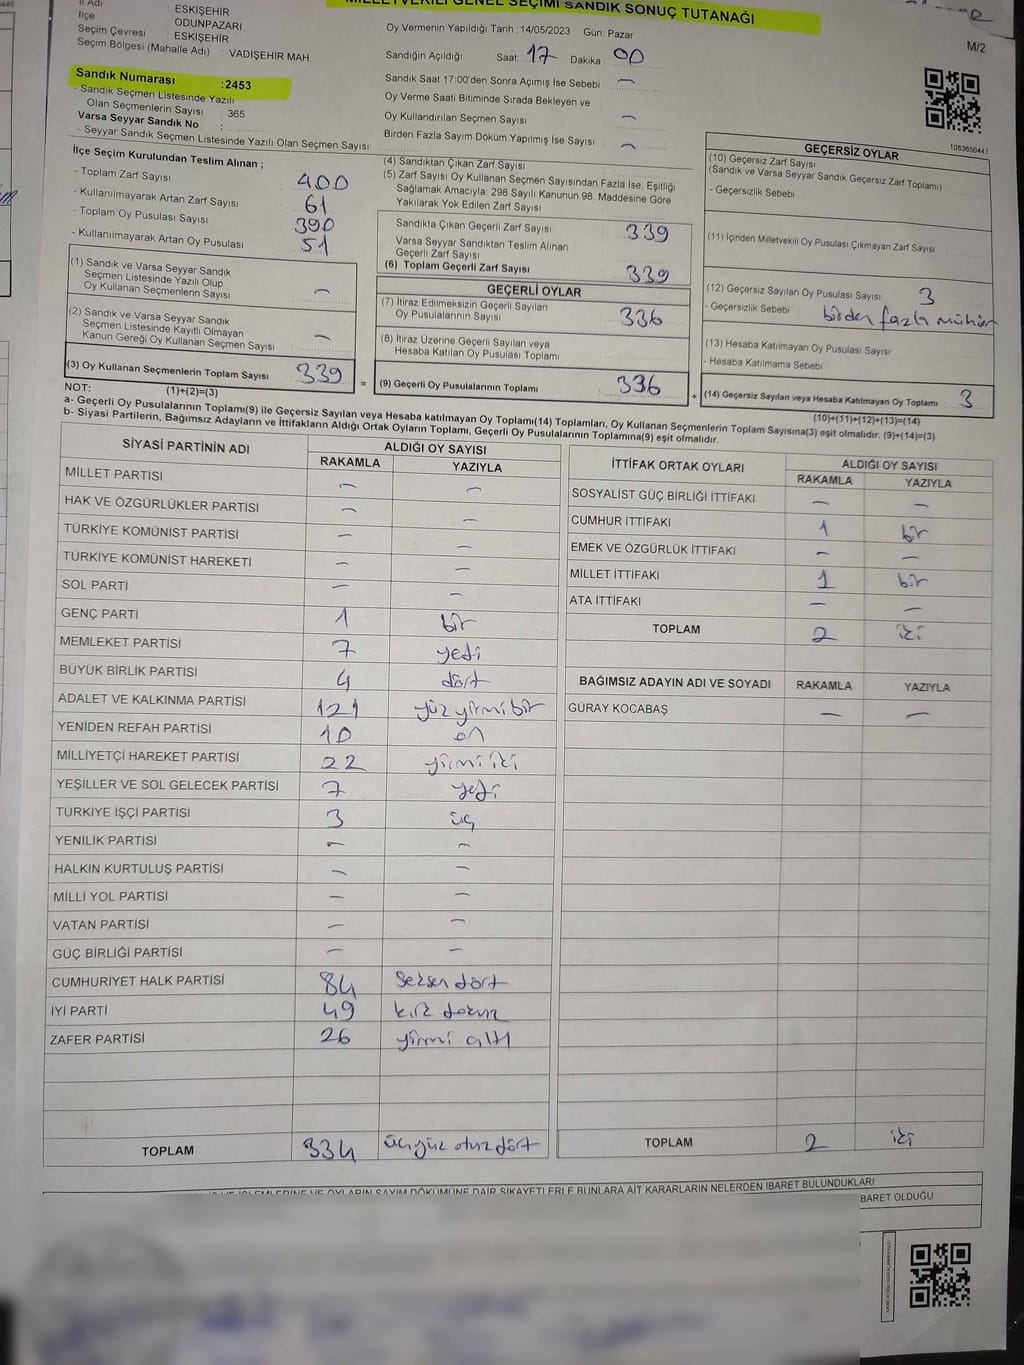 İl Adı : ESKİŞEHİR
İlçe : ODUNPAZARI
Seçim Çevresi : ESKİŞEHİR
Seçim Bölgesi (Mahalle Adı) : VADİŞEHİR MAH
MİLLETVEKİLİ GENEL SEÇİMİ SANDIK SONUÇ TUTANAĞI
M/2
Sandık Numarası :2453
- Sandık Seçmen Listesinde Yazılı
Olan Seçmenlerin Sayısı : 365
Varsa Seyyar Sandık No :
- Seyyar Sandık Seçmen Listesinde Yazılı Olan Seçmen Sayısı:
Oy Vermenin Yapıldığı Tarih : 14/05/2023 Gün: Pazar
Sandığın Açıldığı Saat: 17 Dakika : 00
Sandık Saat 17:00'den Sonra Açımış İse Sebebi : —
Oy Verme Saati Bitiminde Sırada Bekleyen ve
Oy Kullandırılan Seçmen Sayısı : —
Birden Fazla Sayım Döküm Yapılmış İse Sayısı : —
1083650447
İlçe Seçim Kurulundan Teslim Alınan ;
- Toplam Zarf Sayısı : 400
- Kullanılmayarak Artan Zarf Sayısı : 61
- Toplam Oy Pusulası Sayısı : 390
- Kullanılmayarak Artan Oy Pusulası : 51
(1) Sandık ve Varsa Seyyar Sandık
Seçmen Listesinde Yazılı Olup
Oy Kullanan Seçmenlerin Sayısı : —
(2) Sandık ve Varsa Seyyar Sandık
Seçmen Listesinde Kayıtlı Olmayan
Kanun Gereği Oy Kullanan Seçmen Sayısı : —
(3) Oy Kullanan Seçmenlerin Toplam Sayısı : 339
(1)+(2)=(3)
(4) Sandıktan Çıkan Zarf Sayısı :
(5) Zarf Sayısı Oy Kullanan Seçmen Sayısından Fazla İse, Eşitliği
Sağlamak Amacıyla, 298 Sayılı Kanunun 98. Maddesine Göre
Yakılarak Yok Edilen Zarf Sayısı :
Sandıkta Çıkan Geçerli Zarf Sayısı : 339
Varsa Seyyar Sandıktan Teslim Alınan
Geçerli Zarf Sayısı :
(6) Toplam Geçerli Zarf Sayısı : 339
GEÇERLİ OYLAR
(7) İtiraz Edilmeksizin Geçerli Sayılan
Oy Pusulalarının Sayısı : 336
(8) İtiraz Üzerine Geçerli Sayılan veya
Hesaba Katılan Oy Pusulası Toplamı :
= (9) Geçerli Oy Pusulalarının Toplamı : 336 +
GEÇERSİZ OYLAR
(10) Geçersiz Zarf Sayısı :
(Sandık ve Varsa Seyyar Sandık Geçersiz Zarf Toplamı)
- Geçersizlik Sebebi :
(11) İçinden Milletvekili Oy Pusulası Çıkmayan Zarf Sayısı :
(12) Geçersiz Sayılan Oy Pusulası Sayısı : 3
- Geçersizlik Sebebi : birden fazla mühür
(13) Hesaba Katılmayan Oy Pusulası Sayısı :
- Hesaba Katılmama Sebebi :
(14) Geçersiz Sayılan veya Hesaba Katılmayan Oy Toplamı : 3
(10)+(11)+(12)+(13)=(14)
NOT:
a- Geçerli Oy Pusulalarının Toplamı(9) ile Geçersiz Sayılan veya Hesaba katılmayan Oy Toplamı(14) Toplamları, Oy Kullanan Seçmenlerin Toplam Sayısına(3) eşit olmalıdır. (9)+(14)=(3)
b- Siyasi Partilerin, Bağımsız Adayların ve İttifakların Aldığı Ortak Oyların Toplamı, Geçerli Oy Pusulalarının Toplamına(9) eşit olmalıdır.
SİYASİ PARTİNİN ADI ALDIĞI OY SAYISI
RAKAMLA YAZIYLA
MİLLET PARTİSİ — —
HAK VE ÖZGÜRLÜKLER PARTİSİ — —
TÜRKİYE KOMÜNİST PARTİSİ — —
TÜRKİYE KOMÜNİST HAREKETİ — —
SOL PARTİ — —
GENÇ PARTİ 1 bir
MEMLEKET PARTİSİ 7 yedi
BÜYÜK BİRLİK PARTİSİ 4 dört
ADALET VE KALKINMA PARTİSİ 121 yüz yirmi bir
YENİDEN REFAH PARTİSİ 10 on
MİLLİYETÇİ HAREKET PARTİSİ 22 yirmi iki
YEŞİLLER VE SOL GELECEK PARTİSİ 7 yedi
TÜRKİYE İŞÇİ PARTİSİ 3 üç
YENİLİK PARTİSİ — —
HALKIN KURTULUŞ PARTİSİ — —
MİLLİ YOL PARTİSİ — —
VATAN PARTİSİ — —
GÜÇ BİRLİĞİ PARTİSİ — —
CUMHURİYET HALK PARTİSİ 84 seksen dört
İYİ PARTİ 49 kırk dokuz
ZAFER PARTİSİ 26 yirmi altı
TOPLAM 334 üçyüz otuz dört
İTTİFAK ORTAK OYLARI ALDIĞI OY SAYISI
RAKAMLA YAZIYLA
SOSYALİST GÜÇ BİRLİĞİ İTTİFAKI — —
CUMHUR İTTİFAKI 1 bir
EMEK VE ÖZGÜRLÜK İTTİFAKI — —
MİLLET İTTİFAKI 1 bir
ATA İTTİFAKI — —
TOPLAM 2 iki
BAĞIMSIZ ADAYIN ADI VE SOYADI RAKAMLA YAZIYLA
GÜRAY KOCABAŞ — —
TOPLAM 2 iki
İŞLEMLERİNE VE OYLARIN SAYIM DÖKÜMÜNE DAİR ŞİKAYETLERLE BUNLARA AİT KARARLARIN NELERDEN İBARET BULUNDUKLARI
BARET OLDUĞU